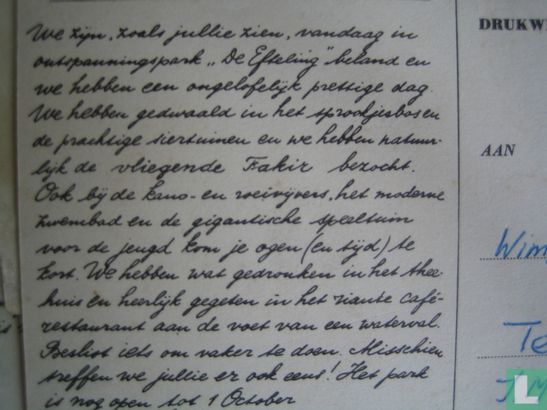 We zijn, zoals jullie zien, vandaag in
ontspanningspark „De Efteling" beland en
we hebben een ongelofelijk prettige dag.
We hebben gedwaald in het sprookjesbos en
de prachtige siertuinen en we hebben natuur-
lijk de vliegende Fakir bezocht.
Ook bij de kano- en roeivijvers, het moderne
zwembad en de gigantische speeltuin
voor de jeugd kom je ogen (en tijd) te
kort. We hebben wat gedronken in het thee-
huis en heerlijk gegeten in het riante café-
restaurant aan de voet van een waterval.
Beslist iets om vaker te doen. Misschien
treffen we jullie er ook eens! Het park
is nog open tot 1 October
DRUKW
AAN
Wim
Te